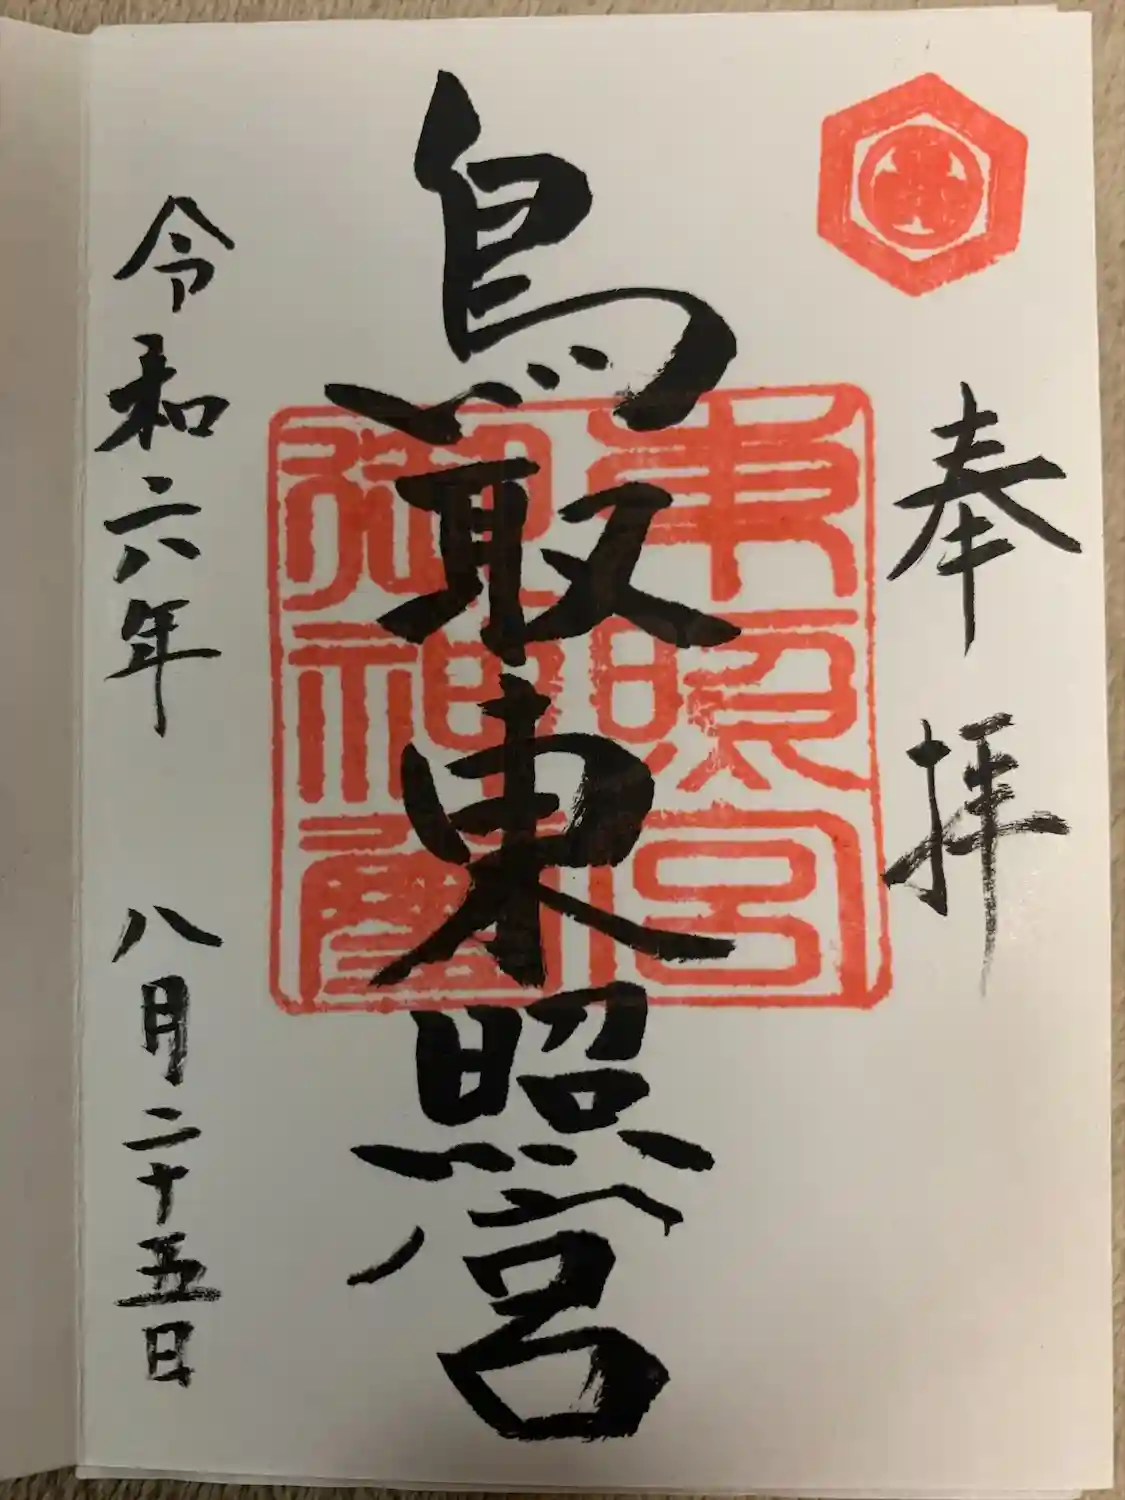 奉拝
鳥取東照宮
東照宮
御神璽
令和六年 八月二十五日